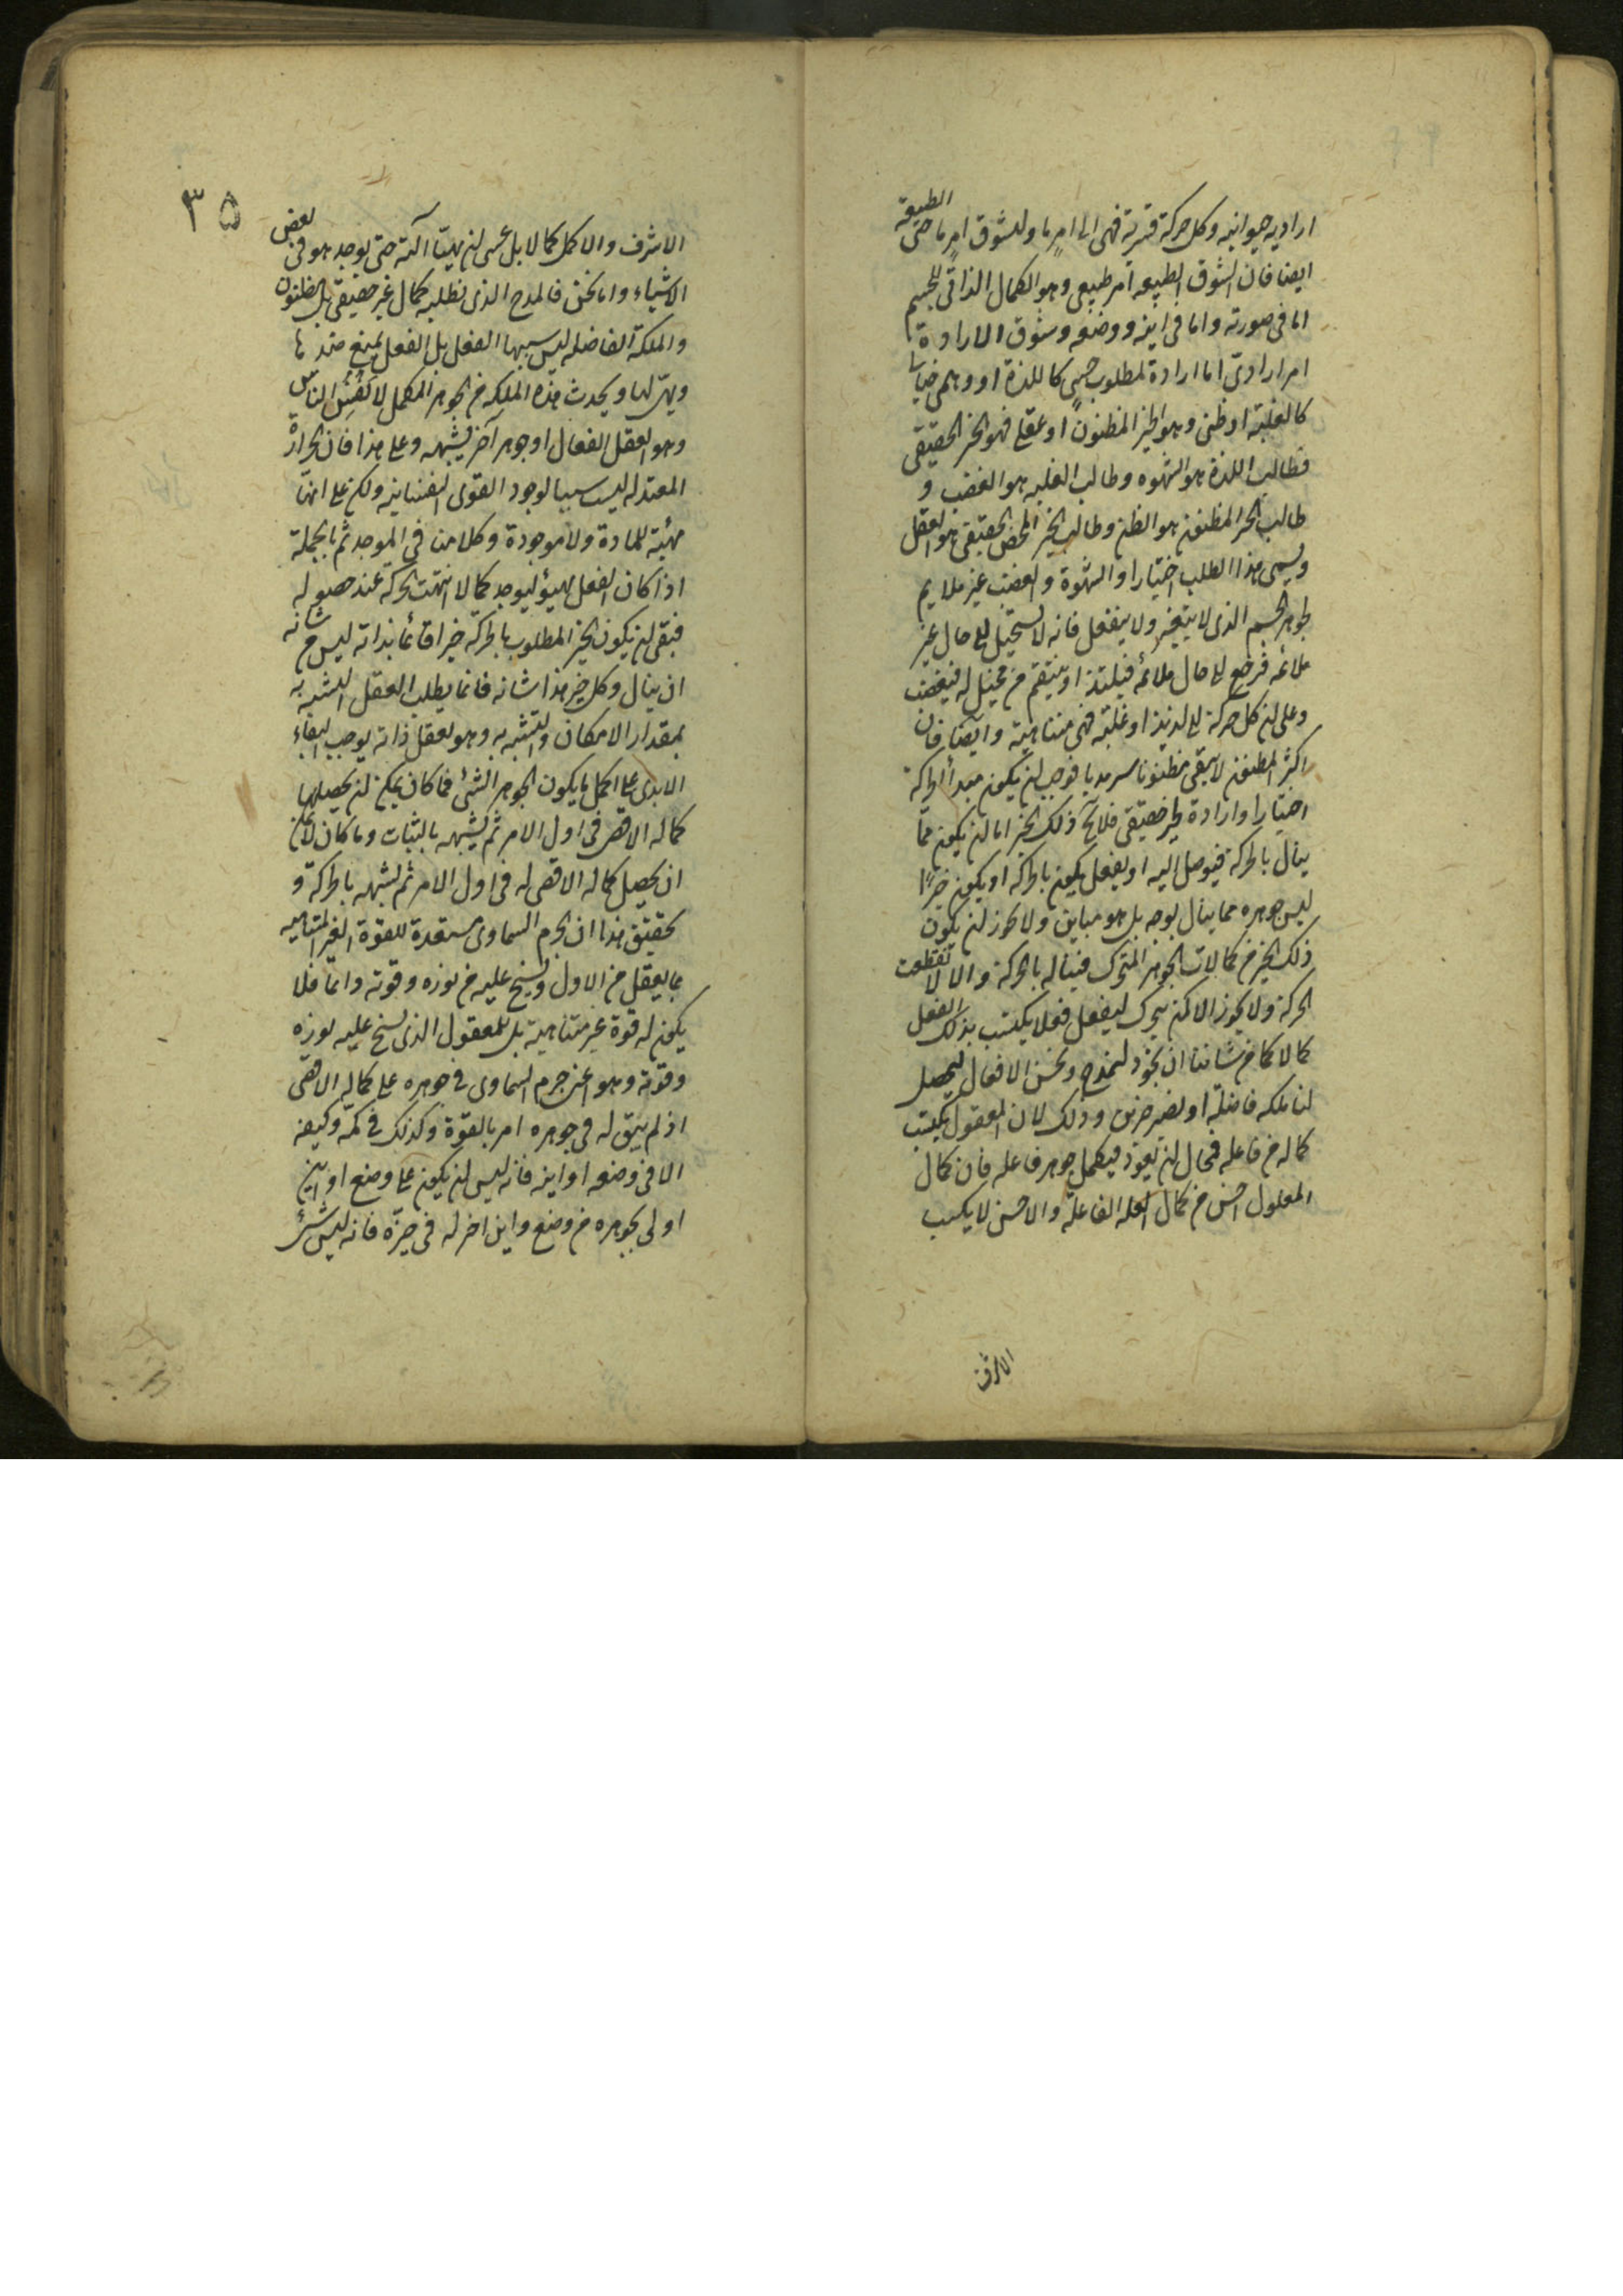 ارادية حيوانية وكل حركة قسرية فهى الى امر ما ولشوق امر ما حتى الطبيعة
ايضا فان شوق الطبيعه امر طبيعى وهو الكمال الذاتى للجسم
اما فى صورته واما فى اينه ووضعه وشوق الارادة
امر ارادى اما ارادة لمطلوب حسى كاللذة او وهمى خيالى
كالغلبة او ظنى وهو الخير المظنون او عقلى فهو الخير الحقيقى
فطالب اللذة هو الشهوه وطالب الغلبه هو الغضب و
طالب الخير المظنون هو الظن وطالب الخير المحض الحقيقى هو العقل
ويسمى هذا الطلب اختيارا والشهوة والغضب غير ملايم
لجوهر الجسم الذى لا يتغير ولا ينفعل فانه لا يستحيل الى حال غير
ملائمه فرجع الى حال ملائمه فيلتذ او ينتقم من مخيل له فيغضب
وعلى ان كل حركة الى لذيذ او غلبة فهى متناهية وايضا فان
اكثر المظنون لا يبقى مظنونا سرمديا فوجب ان يكون مبدأ الحركة
اختيارا وارادة لخير حقيقى فلا يخ ذلك الخير اما ان يكون مما
ينال بالحركة فيوصل اليه او يفعل يكون بالحركة او يكون خيرا
ليس جوهره مما ينال بوجه بل هو مباين ولا يجوز ان يكون
ذلك الخير من كمالات الجوهر المتحرك فيناله بالحركة والا لانقطعت
الحركة ولا يجوز ان يتحرك ليفعل فعلا يكتسب بذلك الفعل
كمالا كما من شاننا ان نجود لنمدح ونحسن الافعال ليحصل
لنا ملكه فاضلة او نصير خيرين وذلك لان المفعول يكتسب
كماله من فاعله فمحال ان يعود فيكمل جوهر فاعله فان كمال
المعلول اخس من كمال العله الفاعلة والاخس لا يكسب
الاشرف
٣٥
الاشرف والاكمل كمالا بل عسى ان يهيئ آلته حتى يوجد هو فى بعض
الاشياء واما نحن فالمدح الذى نطلبه كمال غير حقيقى بل مظنون
والملكة الفاضله ليس سببها الفعل بل الفعل يمنع ضدها
ويهيئ لها ويحدث هذه الملكه من الجوهر المكمل لانفس الناس
وهو العقل الفعال او جوهر آخر يشبهه وعلى هذا فان الحرارة
المعتدله ليست سببا لوجود القوى النفسانية ولكن على انها
مهيئة للمادة ولا موجودة وكلامنا فى الموجد ثم بالجملة
اذا كان الفعل ليهيؤ ليوجد كمالا انتهت الحركة عند حصوله
فبقى ان يكون الخير المطلوب بالحركة خيرا قائما بذاته ليس من شانه
ان ينال وكل خير هذا شانه فانما يطلب العقل التشبه به
بمقدار الامكان والتشبه به وهو تعقل ذاته يوجب البقاء
الابدى على اكمل ما يكون لجوهر الشئ فما كان يمكن ان يحصلها
كماله الاقصى فى اول الامر ثم تشبهه بالثبات وما كان لا يمكن
ان يحصل كماله الاقصى له فى اول الامر ثم تشبهه بالحركة و
تحقيق هذا ان الجرم السماوى مستعدة للقوة الغير المتناهية
بما يعقل من الاول ويسنح عليه من نوره وقوته دائما فلا
يكون له قوة غير متناهية بل للمعقول الذى يسنح عليه نوره
وقوته وهو اعنى جرم السماوى فى جوهره على كماله الاقصى
اذ لم يبق له فى جوهره امر بالقوة وكذلك فى كمه وكيفه
الا فى وضعه او اينه فانه ليس ان يكون على وضع او اين
اولى بجوهره من وضع واين اخر له فى حيزه فانه ليس شئ